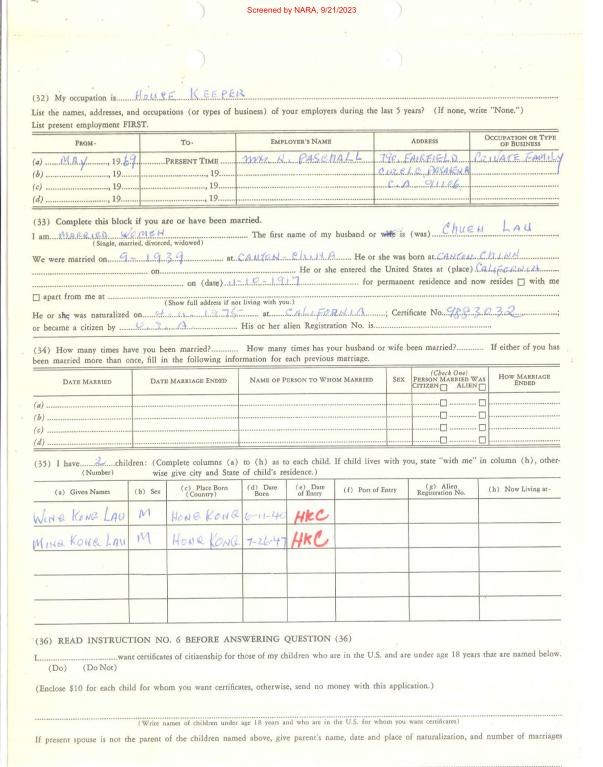 Screened by NARA, 9/21/2023
(32) My occupation is HOUSE KEEPER
List the names, addresses, and occupations (or types of business) of your employers during the last 5 years? (If none, write "None.")
List present employment FIRST.
FROM- TO- EMPLOYER'S NAME ADDRESS OCCUPATION OR TYPE OF BUSINESS
(a) MAY, 1969 PRESENT TIME N. PASCHALL FAIRFIELD PRIVATE FAMILY
(b) , 19 , 19 CIRCLE, PASADENA
(c) , 19 , 19 C.A 91106
(d) , 19 , 19
(33) Complete this block if you are or have been married.
I am MARRIED WOMEN The first name of my husband or wife is (was) CHUEN LAU
(Single, married, divorced, widowed)
We were married on 9- 1939 at CANTON-CHINA He or she was born at CANTON-CHINA
on He or she entered the United States at (place) CALIFORNIA
on (date) 11-10-1917 for permanent residence and now resides □ with me
□ apart from me at
(Show full address if not living with you.)
He or she was naturalized on 4-11-1975 at CALIFORNIA; Certificate No. 9883032;
or became a citizen by U.S.A His or her alien Registration No. is
(34) How many times have you been married? How many times has your husband or wife been married? If either of you has
been married more than once, fill in the following information for each previous marriage.
DATE MARRIED DATE MARRIAGE ENDED NAME OF PERSON TO WHOM MARRIED SEX (Check One) PERSON MARRIED WAS CITIZEN □ ALIEN □ HOW MARRIAGE ENDED
(a) □ □
(b) □ □
(c) □ □
(d) □ □
(35) I have 2 children: (Complete columns (a) to (h) as to each child. If child lives with you, state "with me" in column (h), other-
(Number) wise give city and State of child's residence.)
(a) Given Names (b) Sex (c) Place Born (Country) (d) Date Born (e) Date of Entry (f) Port of Entry (g) Alien Registration No. (h) Now Living at-
WING KONG LAU M HONG KONG 6-11-40 HKC
MING KONG LAU M HONG KONG 7-26-47 HKC
(36) READ INSTRUCTION NO. 6 BEFORE ANSWERING QUESTION (36)
I want certificates of citizenship for those of my children who are in the U.S. and are under age 18 years that are named below.
(Do) (Do Not)
(Enclose $10 for each child for whom you want certificates, otherwise, send no money with this application.)
(Write names of children under age 18 years and who are in the U.S. for whom you want certificates)
If present spouse is not the parent of the children named above, give parent's name, date and place of naturalization, and number of marriages